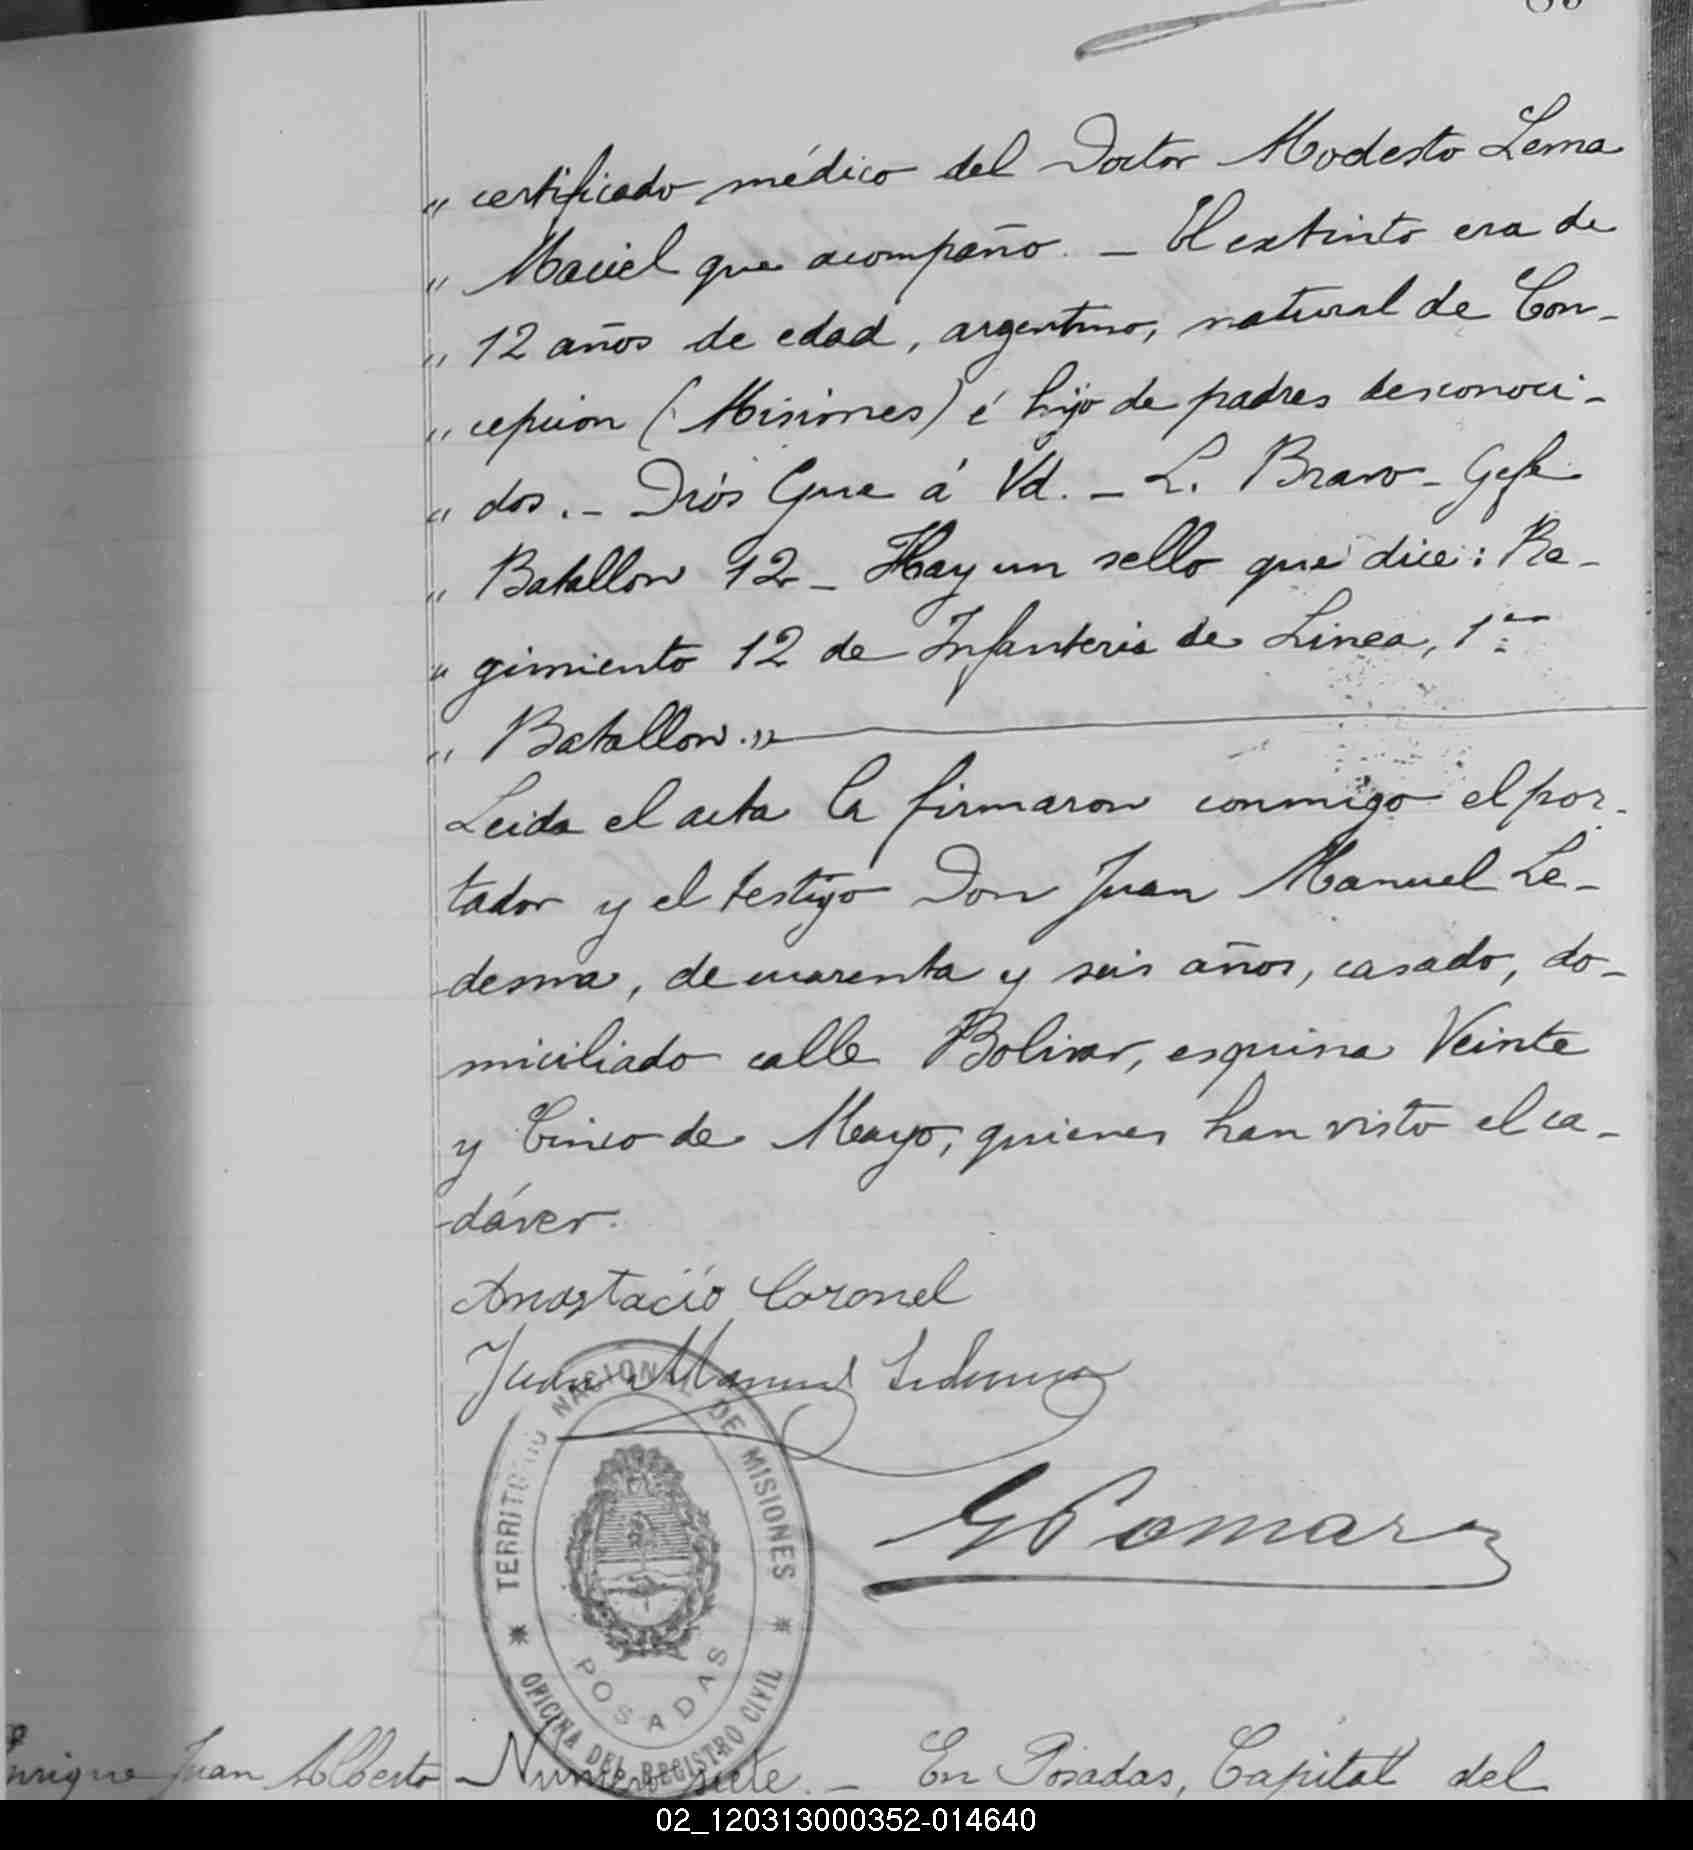 „ certificado médico del Doctor Modesto Lema
„ Maciel que acompaño. — El extinto era de
„ 12 años de edad, argentino, natural de Con-
„ cepcion (Misiones) é hijo de padres desconoci-
„ dos. — Diós Gue á Vd. — L. Bravo — Gefe
„ Batallon 12 — Hay un sello que dice: Re-
„ gimiento 12 de Infanteria de Linea, 1er
„ Batallon.»
Leida el acta la firmaron conmigo el por-
tador y el testigo Don Juan Manuel Le-
desma, de cuarenta y seis años, casado, do-
miciliado calle Bolivar, esquina Veinte
y Cinco de Mayo, quienes han visto el ca-
dáver.
Anastacio Coronel
Juan Manuel Ledesma
G Pomar
TERRITORIO NACIONAL DE MISIONES
POSADAS
* OFICINA DEL REGISTRO CIVIL *
Enrique Juan Alberto
Número siete. — En Posadas, Capital del
02_120313000352-014640